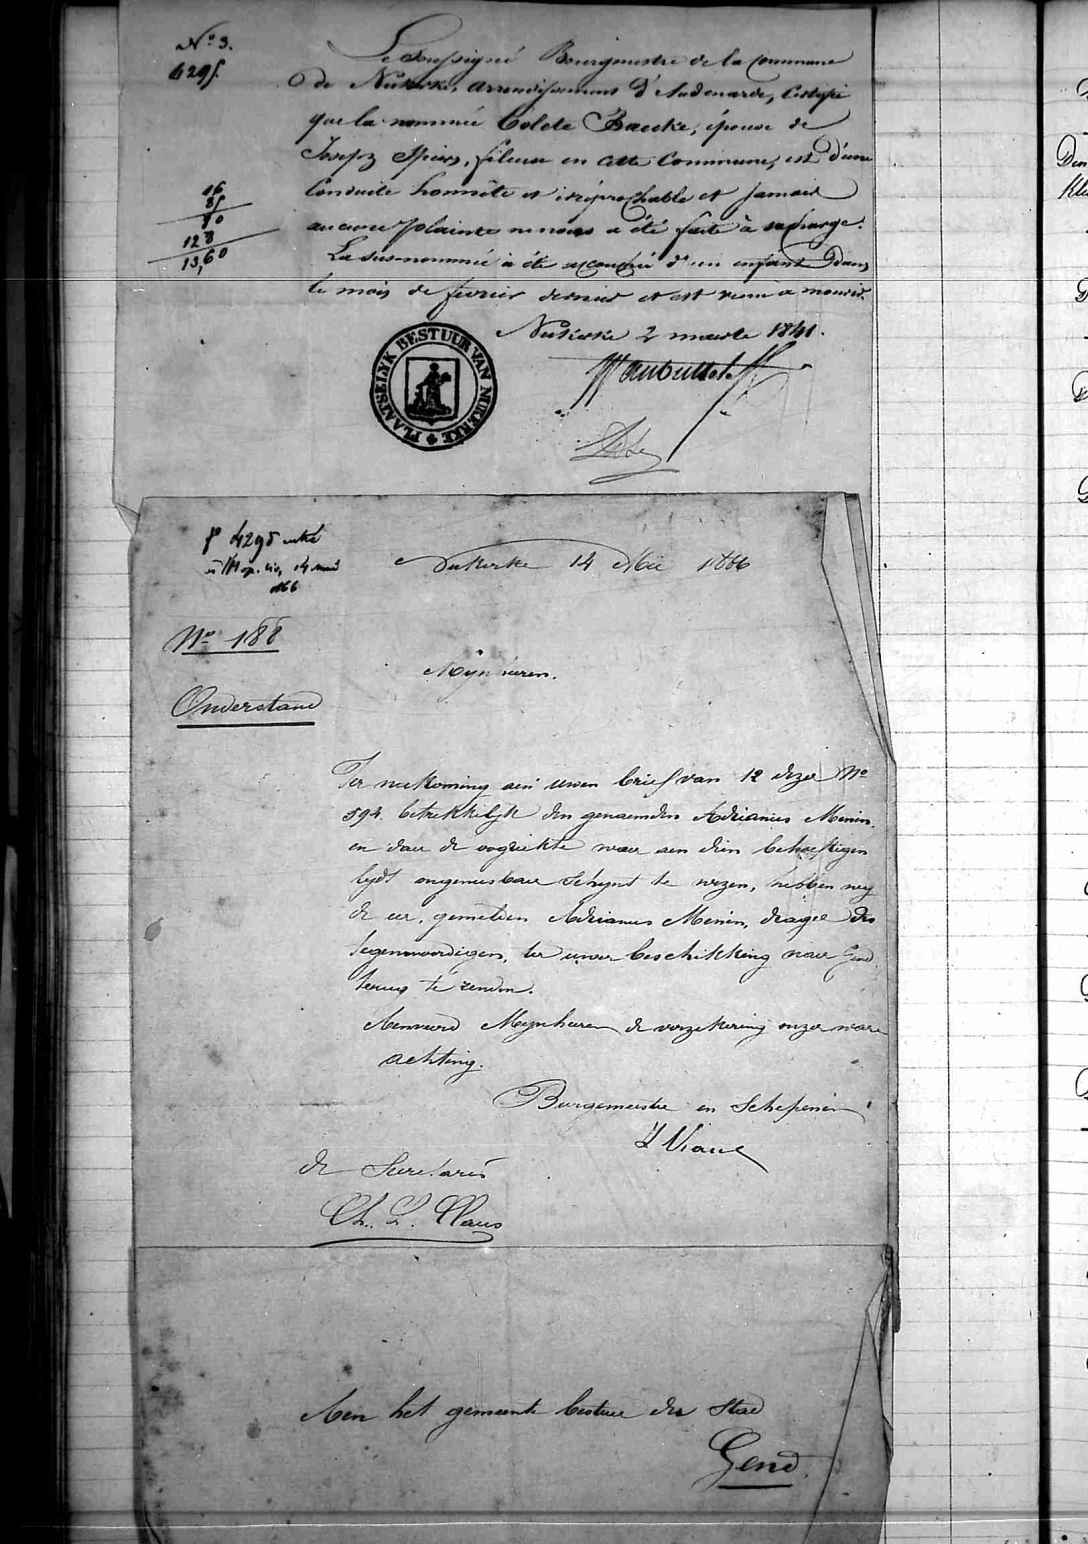 N° 3.
4295.
Le soussigné Bourgmestre de la Commune
de Nukerke, arrondissement d'Audenarde, Certifie
que la nommée Colete Baecke, épouse de
Joseph Spiers, fileuse en cette Commune, est d'une
Conduite honnête et irréprochable et jamais
aucune plainte ne nous a été faite à sa charge.
La susnommée a été accouchée d'un enfant dans
le mois de fevrier dernier et est venu a mourir.
16
80
128
13,60
Nukerke 2 maerte 1841.
PLAATSELYK BESTUUR VAN NUKERKE
f° 4295
14
Nukerke 14 Mei 1866
N° 188
Mynheeren.
Onderstand
Ter nakoming aen uwen brief van 12 dezer N°
594 betrekkelyk den genaemden Adrianus Menin,
en daer de oogziekte waer aen dien behoeftigen
lydt ongeneesbaer schynt te wezen, hebben wy
de eer, gemelden Adrianus Menin, drager des
tegenwoordigen, ter uwer beschikking naer Gend
terug te zenden.
Aenveerd Mynheeren de verzekering onzer ware
achting.
Burgemeester en Schepenen
de Secretaris
Ch. L. Claus
Aen het gemeente bestuer der Stad
Gend.